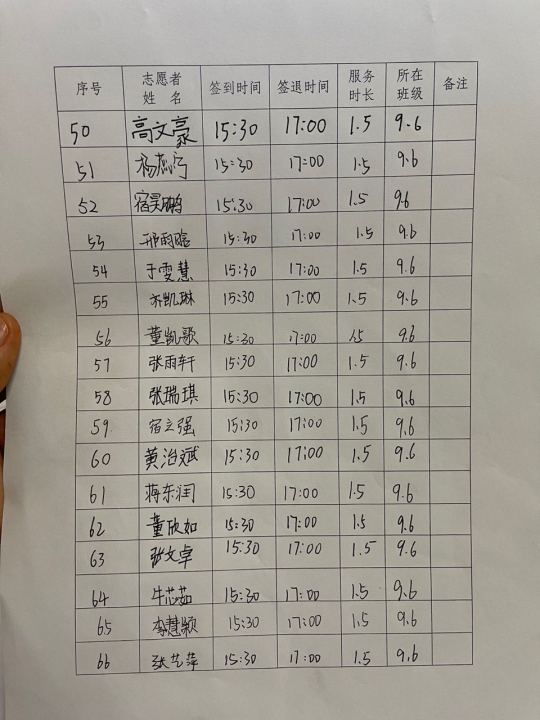 序号 志愿者姓名 签到时间 签退时间 服务时长 所在班级 备注
50 高文豪 15:30 17:00 1.5 9.6
51 15:30 17:00 1.5 9.6
52 宿昊鹏 15:30 17:00 1.5 9.6
53 邢雨晗 15:30 17:00 1.5 9.6
54 于雯慧 15:30 17:00 1.5 9.6
55 齐凯琳 15:30 17:00 1.5 9.6
56 董凯歌 15:30 17:00 1.5 9.6
57 张雨轩 15:30 17:00 1.5 9.6
58 张瑞琪 15:30 17:00 1.5 9.6
59 宿立强 15:30 17:00 1.5 9.6
60 黄治斌 15:30 17:00 1.5 9.6
61 蒋东润 15:30 17:00 1.5 9.6
62 董欣如 15:30 17:00 1.5 9.6
63 张文卓 15:30 17:00 1.5 9.6
64 牛芯茹 15:30 17:00 1.5 9.6
65 李慧颖 15:30 17:00 1.5 9.6
66 张艺萍 15:30 17:00 1.5 9.6